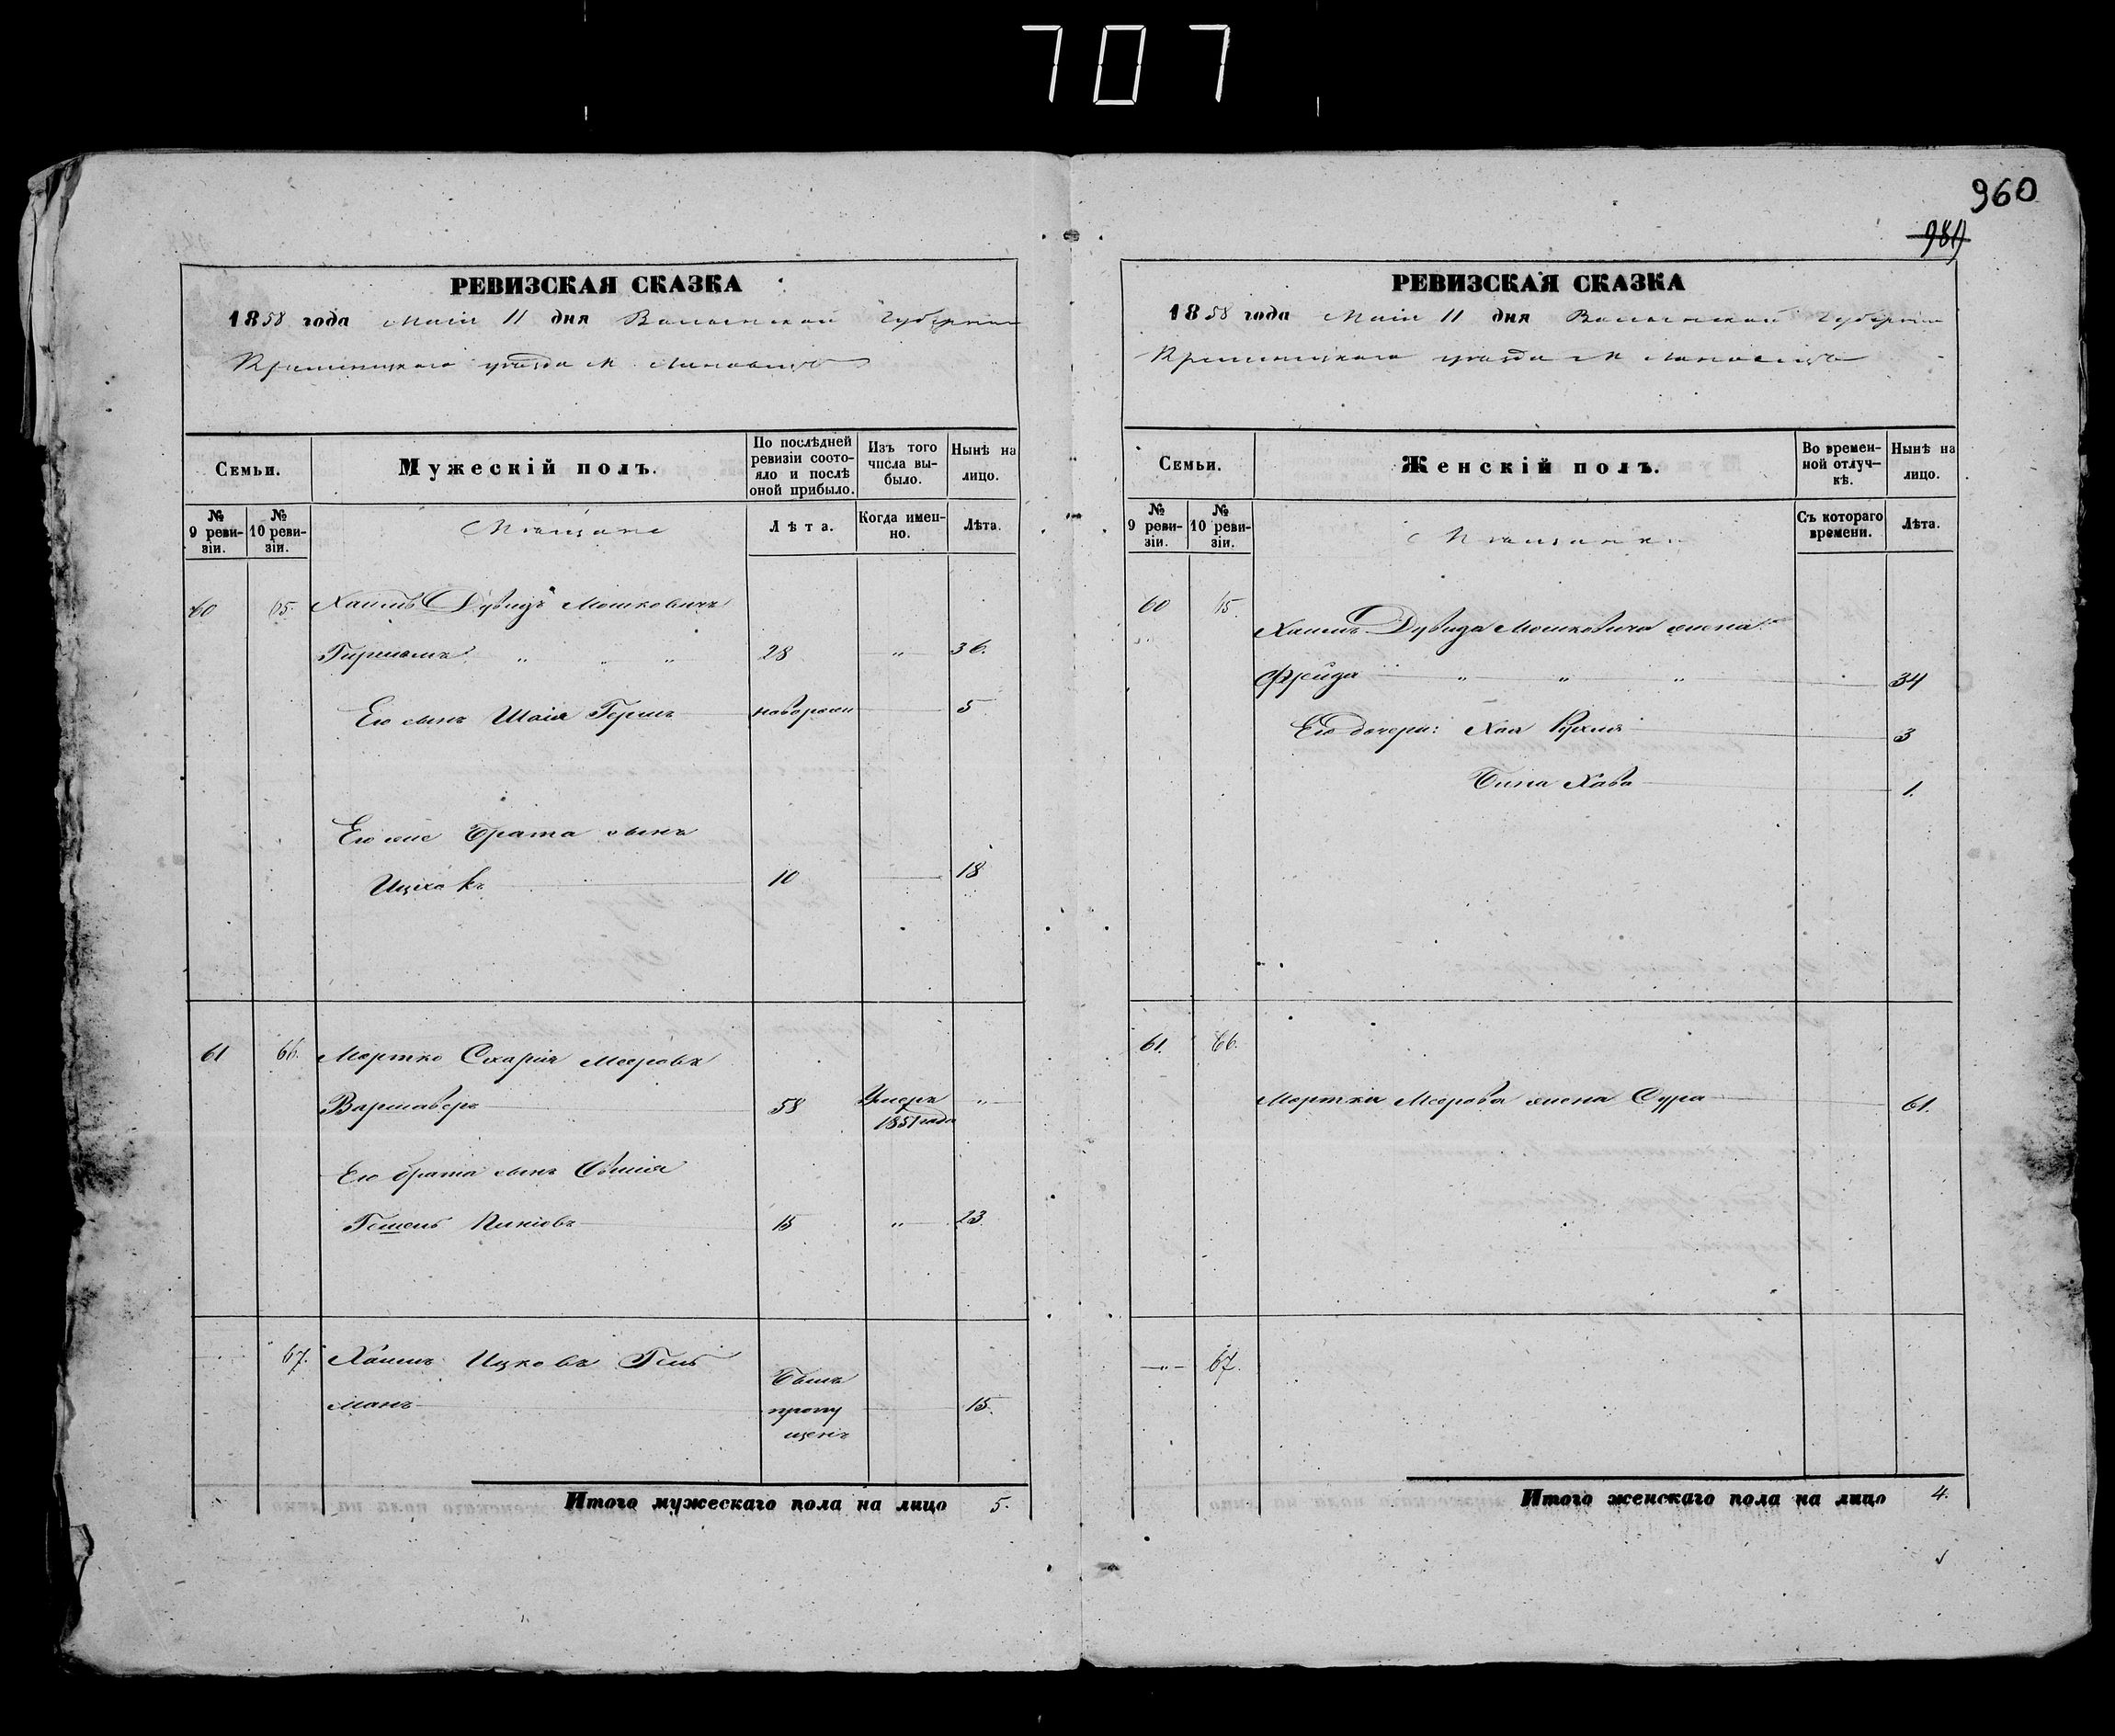 707
960
989
РЕВИЗСКАЯ СКАЗКА
1858 года Маiя 11 дня Волынской Губернiи
Кременецкаго уѣзда М. Лановецъ
Семьи.
Мужескiй полъ.
По послѣдней ревизiи состояло и послѣ оной прибыло.
Изъ того числа выбыло.
Нынѣ на лицо.
№ 9 ревизiи.
№ 10 ревизiи.
Мѣщане
Лѣта.
Когда именно.
Лѣта.
60 65. Хаимъ Дувидъ Мошковичъ
28 " 36.
Его сынъ Шаiя Гершъ новорожд 5
Его же брата сынъ
Ицхокъ 10 18
61 66. Мортко Схарiя Мееровъ
Варшаверъ 58 Умеръ 1851 года "
Его брата сынъ
Пинiовъ 15 " 23
67. Хаимъ Ицковъ Гель
манъ Былъ пропущенъ 15.
Итого мужескаго пола на лицо 5.
РЕВИЗСКАЯ СКАЗКА
1858 года Маiя 11 дня Волынской Губернiи
Кременецкаго уѣзда М Лановецъ
Семьи.
Женскiй полъ.
Во временной отлучкѣ.
Нынѣ на лицо.
№ 9 ревизiи.
№ 10 ревизiи.
Мѣщанки
Съ котораго времени.
Лѣта.
60 65. Хаимъ Дувида Мошковича жена
Фрейда " " " 34
Его дочери: Хая Рухля 3
Бина Хава 1.
61. 66.
Мортки Меерова жена Сура 61.
" 67.
Итого женскаго пола на лицо 4.